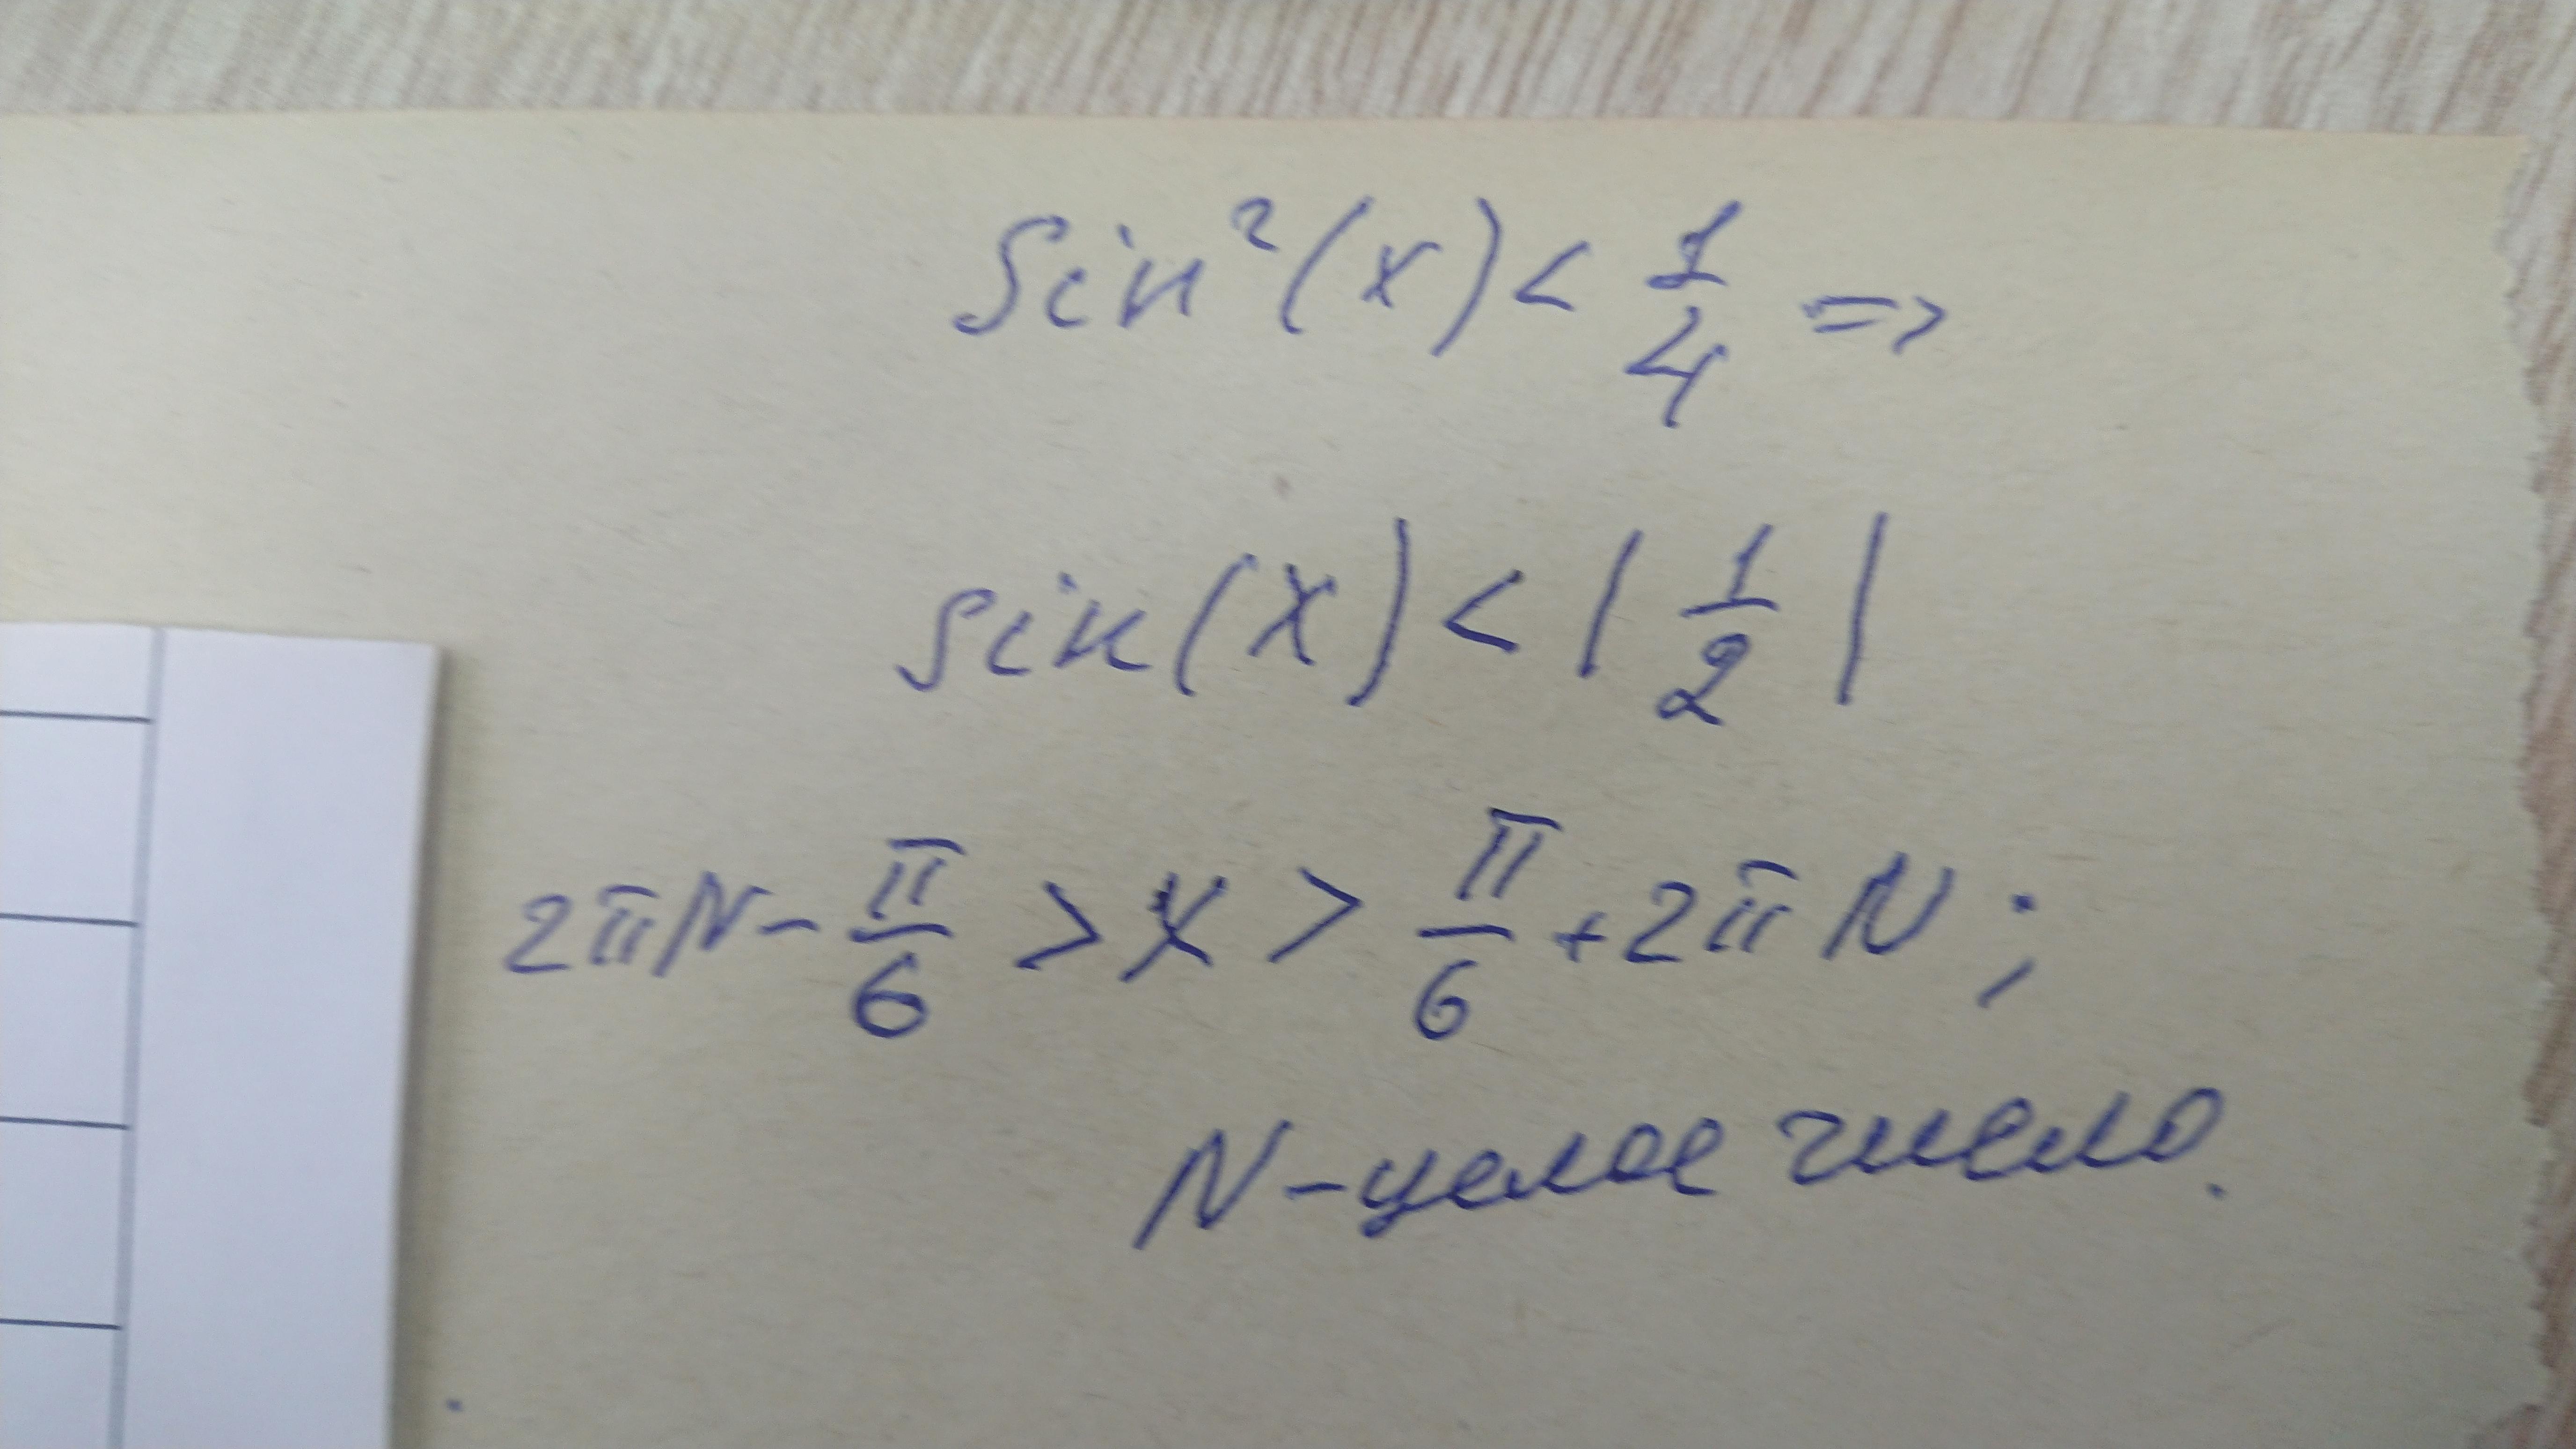 Sin²(x) < 1/4 =>
sin(x) < |1/2|
2πN - π/6 > x > π/6 + 2πN;
N - целое число.